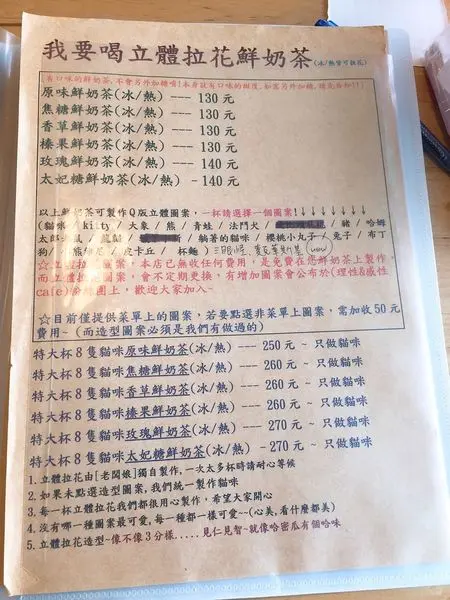 我要喝立體拉花鮮奶茶(冰/熱皆可拉花)
(有口味的鮮奶茶,不會另外加糖唷!本身就有口味的甜度,如需另外加糖,請先告知!!)
原味鮮奶茶(冰/熱) --- 130 元
焦糖鮮奶茶(冰/熱) --- 130 元
香草鮮奶茶(冰/熱) --- 130 元
榛果鮮奶茶(冰/熱) --- 130 元
玫瑰鮮奶茶(冰/熱) --- 140 元
太妃糖鮮奶茶(冰/熱) - 140 元
以上鮮奶茶可製作Q版立體圖案,一杯請選擇一個圖案!↓↓↓↓↓↓↓
(貓咪 / kitty / 大象 / 熊 / 青蛙 / 法鬥犬 / / 豬 / 哈姆
太郎 鼠 / 龍貓 / / 躺著的貓咪 / 櫻桃小丸子 / 兔子 / 布丁
狗/ / 皮卡丘 / 杯麵 ) 三眼怪
☆立體拉花圖案,本店已無收任何費用,是免費在您鮮奶茶上製作
而立體拉花圖案,會不定期更換,有增加圖案會公布於(理性&感性
cafe)粉絲團上,歡迎大家加入~
☆目前僅提供菜單上的圖案,若要點選非菜單上圖案,需加收 50 元
費用~ (而造型圖案必須是我們有做過的)
特大杯 8 隻貓咪原味鮮奶茶(冰/熱) --- 250 元 ~ 只做貓咪
特大杯 8 隻貓咪焦糖鮮奶茶(冰/熱) --- 260 元 ~ 只做貓咪
特大杯 8 隻貓咪香草鮮奶茶(冰/熱) --- 260 元 ~ 只做貓咪
特大杯 8 隻貓咪榛果鮮奶茶(冰/熱) --- 260 元 ~ 只做貓咪
特大杯 8 隻貓咪玫瑰鮮奶茶(冰/熱) --- 270 元 ~ 只做貓咪
特大杯 8 隻貓咪太妃糖鮮奶茶(冰/熱) - 270 元 ~ 只做貓咪
1. 立體拉花由[老闆娘]獨自製作,一次太多杯時請耐心等候
2. 如果未點選造型圖案,我們統一製作貓咪
3. 每一杯立體拉花我們都很用心製作,希望大家開心
4. 沒有哪一種圖案最可愛,每一種都一樣可愛~~(心美,看什麼都美)
5. 立體拉花造型~像不像3分樣.....見仁見智~就像哈密瓜有個哈味